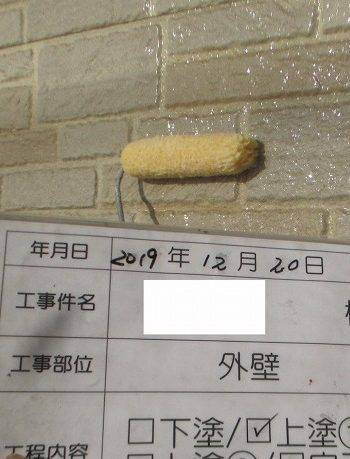 年月日 2019年12月20日
工事件名
工事部位 外壁
工程内容 □下塗/☑上塗